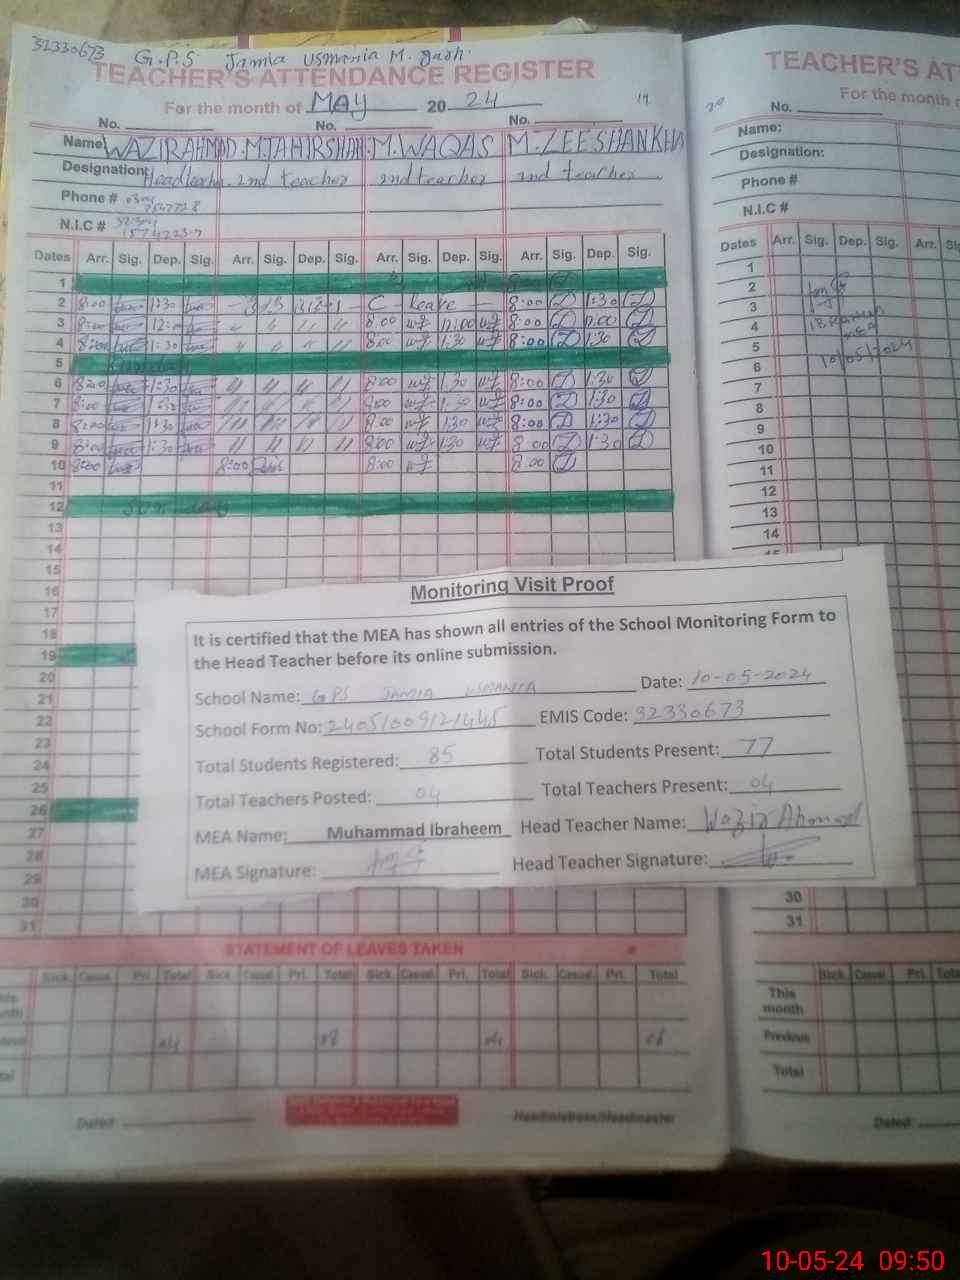 32330673 G.P.S Jamia Usmania M. Garh.
TEACHER'S ATTENDANCE REGISTER
For the month of MAY 2024
19
No. No. No.
Name WAZIRAHMAD. M.TAHIRSHAH M.WAQAS M.ZEESHANKHA
Designation Headteacher 2nd teacher 2nd teacher 2nd teacher
Phone #
N.I.C #
Dates Arr. Sig. Dep. Sig. Arr. Sig. Dep. Sig. Arr. Sig. Dep. Sig. Arr. Sig. Dep. Sig.
1
2 8:00 1:30 C - Leave 8:00 1:30
3 8:00 12:00 8:00 12:00 8:00 12:00
4 8:00 1:30 8:00 1:30 8:00 1:30
5 Sunday
6 8:00 1:30 8:00 1:30 8:00 1:30
7 8:00 1:30 8:00 1:30 8:00 1:30
8 8:00 1:30 8:00 1:30 8:00 1:30
9 8:00 1:30 8:00 1:30 8:00 1:30
10 8:00 8:00 8:00 8:00
11
12 Sunday
13
14
15
16
17
18
19
20
21
22
23
24
25
26
27
28
29
30
31
Monitoring Visit Proof
It is certified that the MEA has shown all entries of the School Monitoring Form to
the Head Teacher before its online submission.
School Name: GPS JAMIA USMANIA Date: 10-05-2024
School Form No: 24051009121445 EMIS Code: 32330673
Total Students Registered: 85 Total Students Present: 77
Total Teachers Posted: 04 Total Teachers Present: 04
MEA Name: Muhammad Ibraheem Head Teacher Name: Wazir Ahmad
MEA Signature: Head Teacher Signature:
STATEMENT OF LEAVES TAKEN
Sick. Casual. Pri. Total Sick. Casual. Pri. Total Sick. Casual. Pri. Total Sick. Casual. Pri. Total
04 08 04 06
Dated: Headmistress/Headmaster
TEACHER'S AT
For the month o
20
No.
Name:
Designation:
Phone #
N.I.C #
Dates Arr. Sig. Dep. Sig. Arr. Si
1
2
3
4
5
6
10/05/2024
7
8
9
10
11
12
13
14
30
31
Sick. Casual. Pri. Tota
This
month
Previous
Total
Dated:
10-05-24 09:50